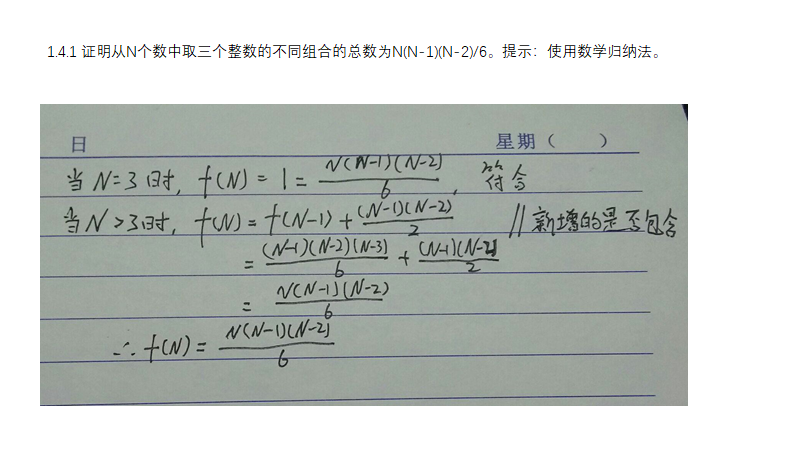 1.4.1 证明从N个数中取三个整数的不同组合的总数为N(N-1)(N-2)/6。提示：使用数学归纳法。
日 星期（ ）
当N=3时, f(N) = 1 = N(N-1)(N-2)/6, 符合
当N>3时, f(N) = f(N-1) + (N-1)(N-2)/2 //新增的是否包含
= (N-1)(N-2)(N-3)/6 + (N-1)(N-2)/2
= N(N-1)(N-2)/6
∴ f(N) = N(N-1)(N-2)/6